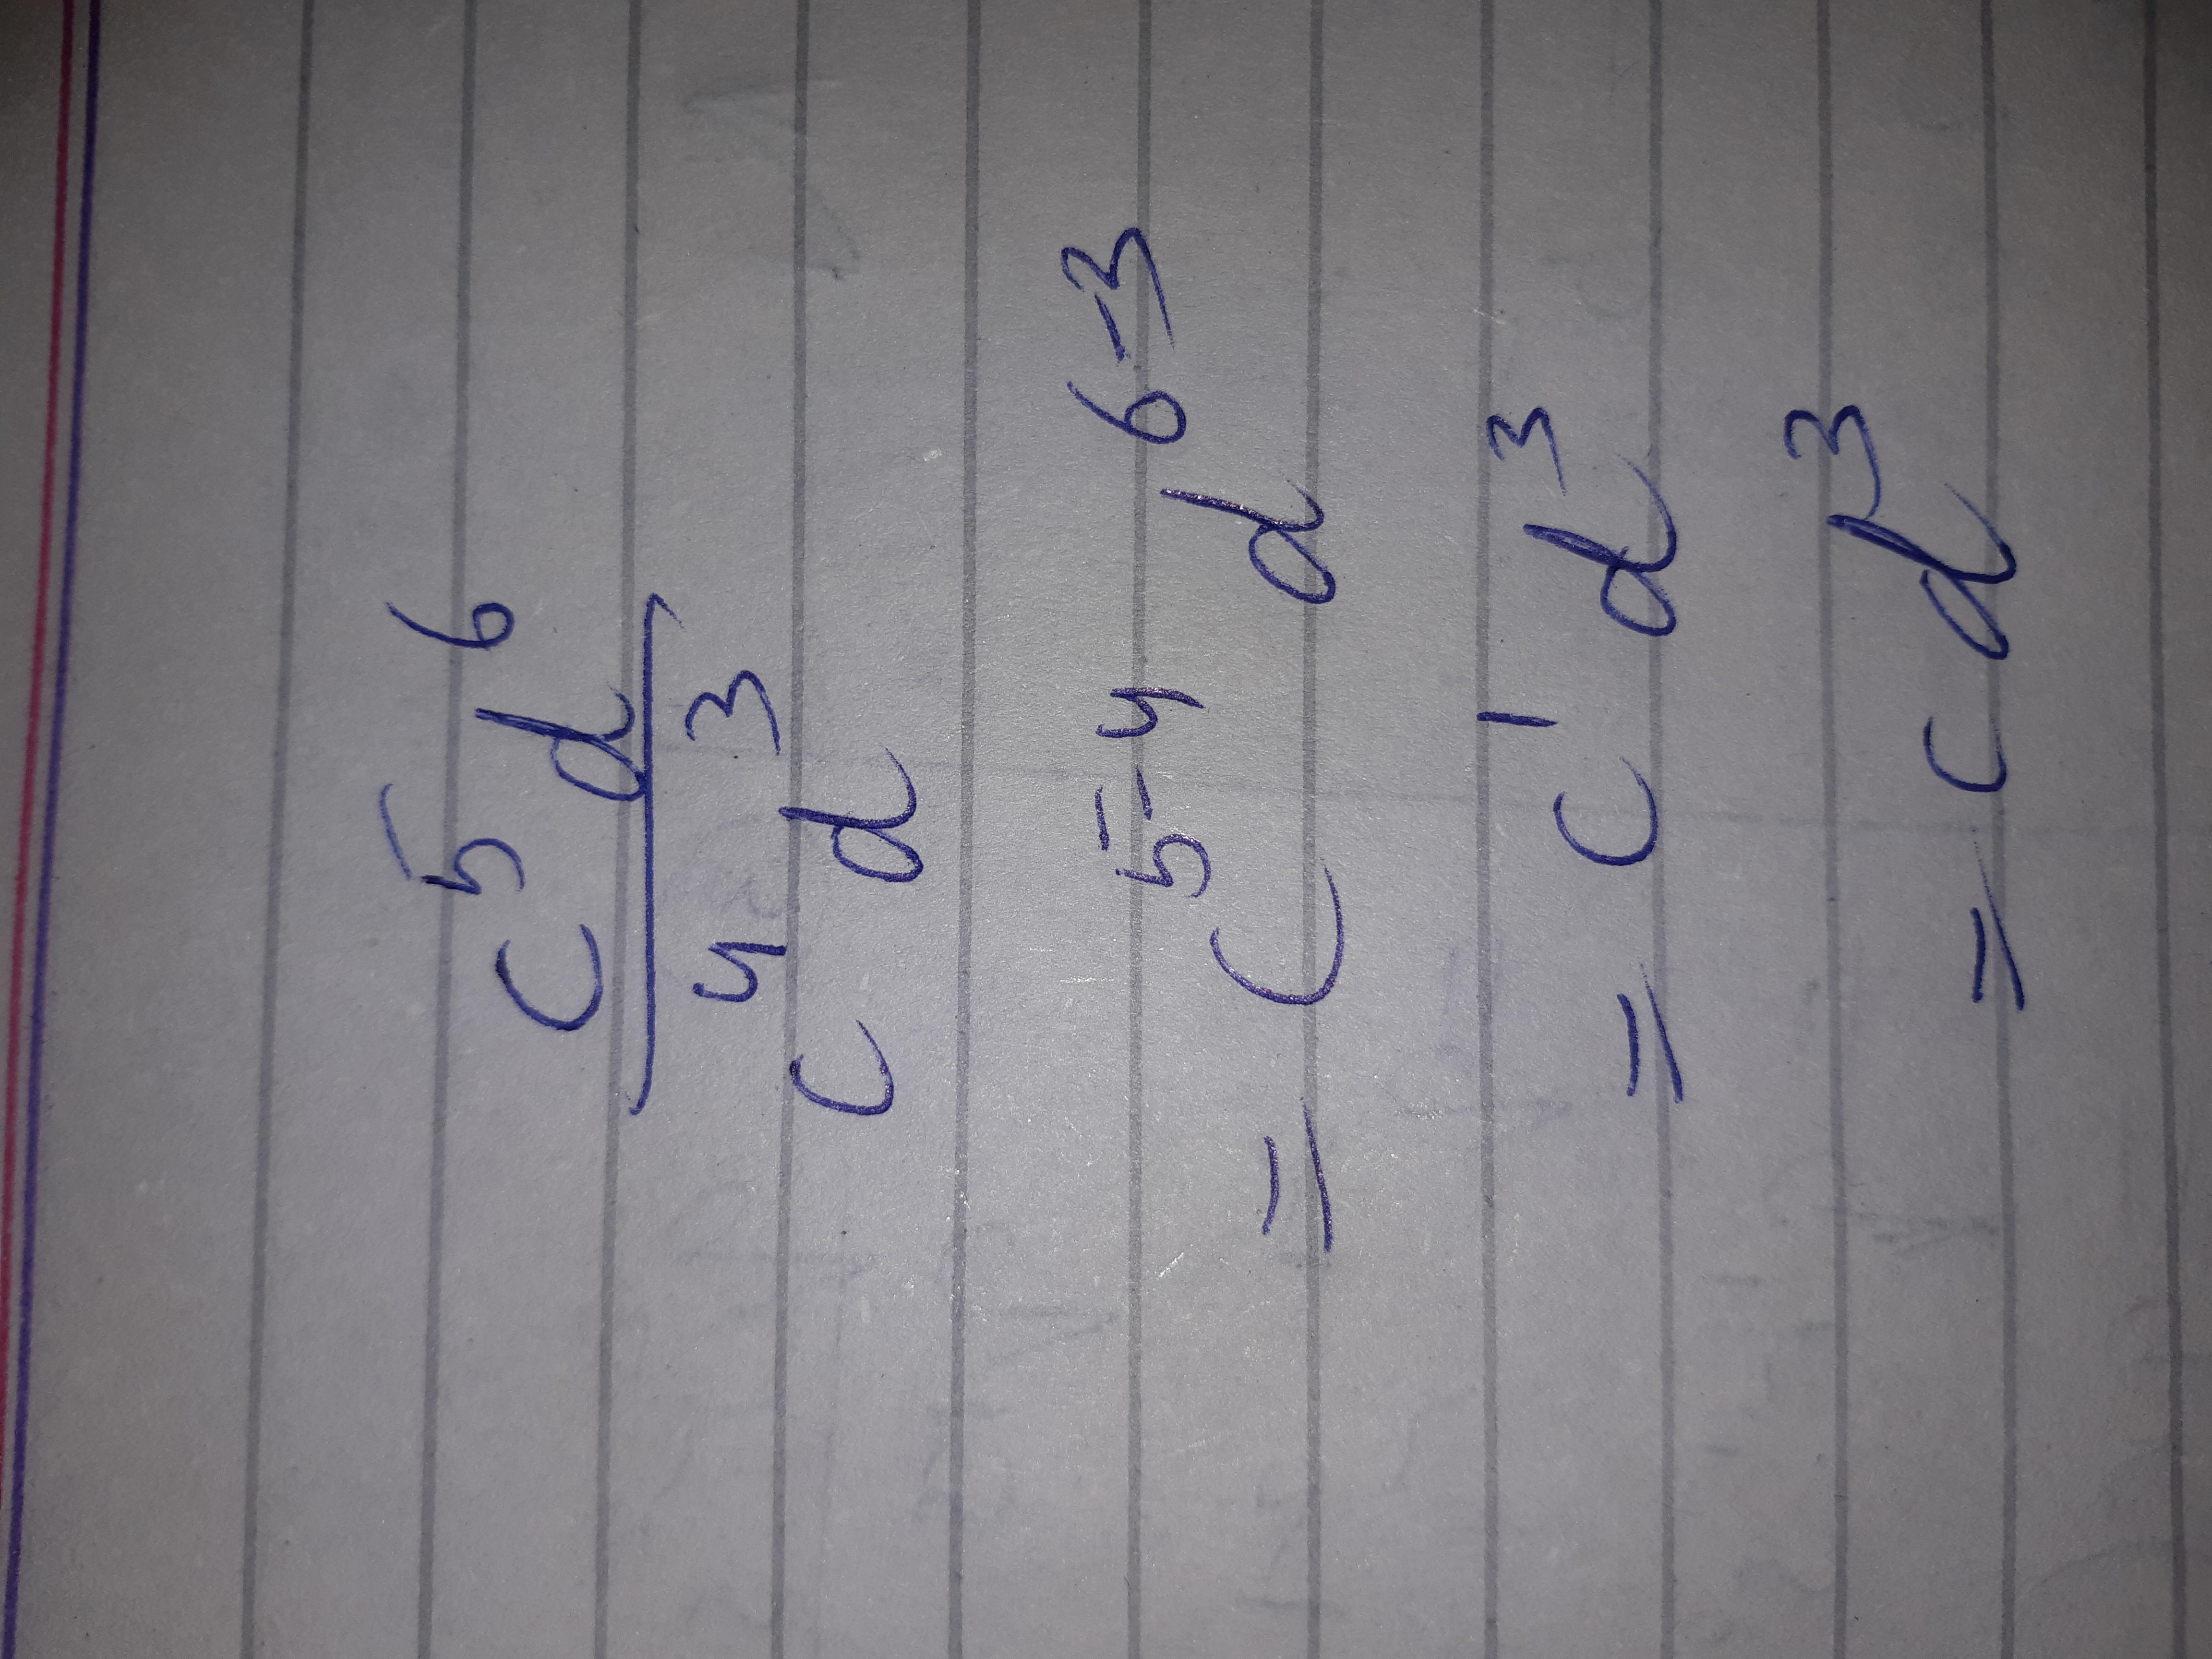 c⁵d⁶
c⁴d³
= c⁵⁻⁴ d⁶⁻³
= c¹ d³
= c d³